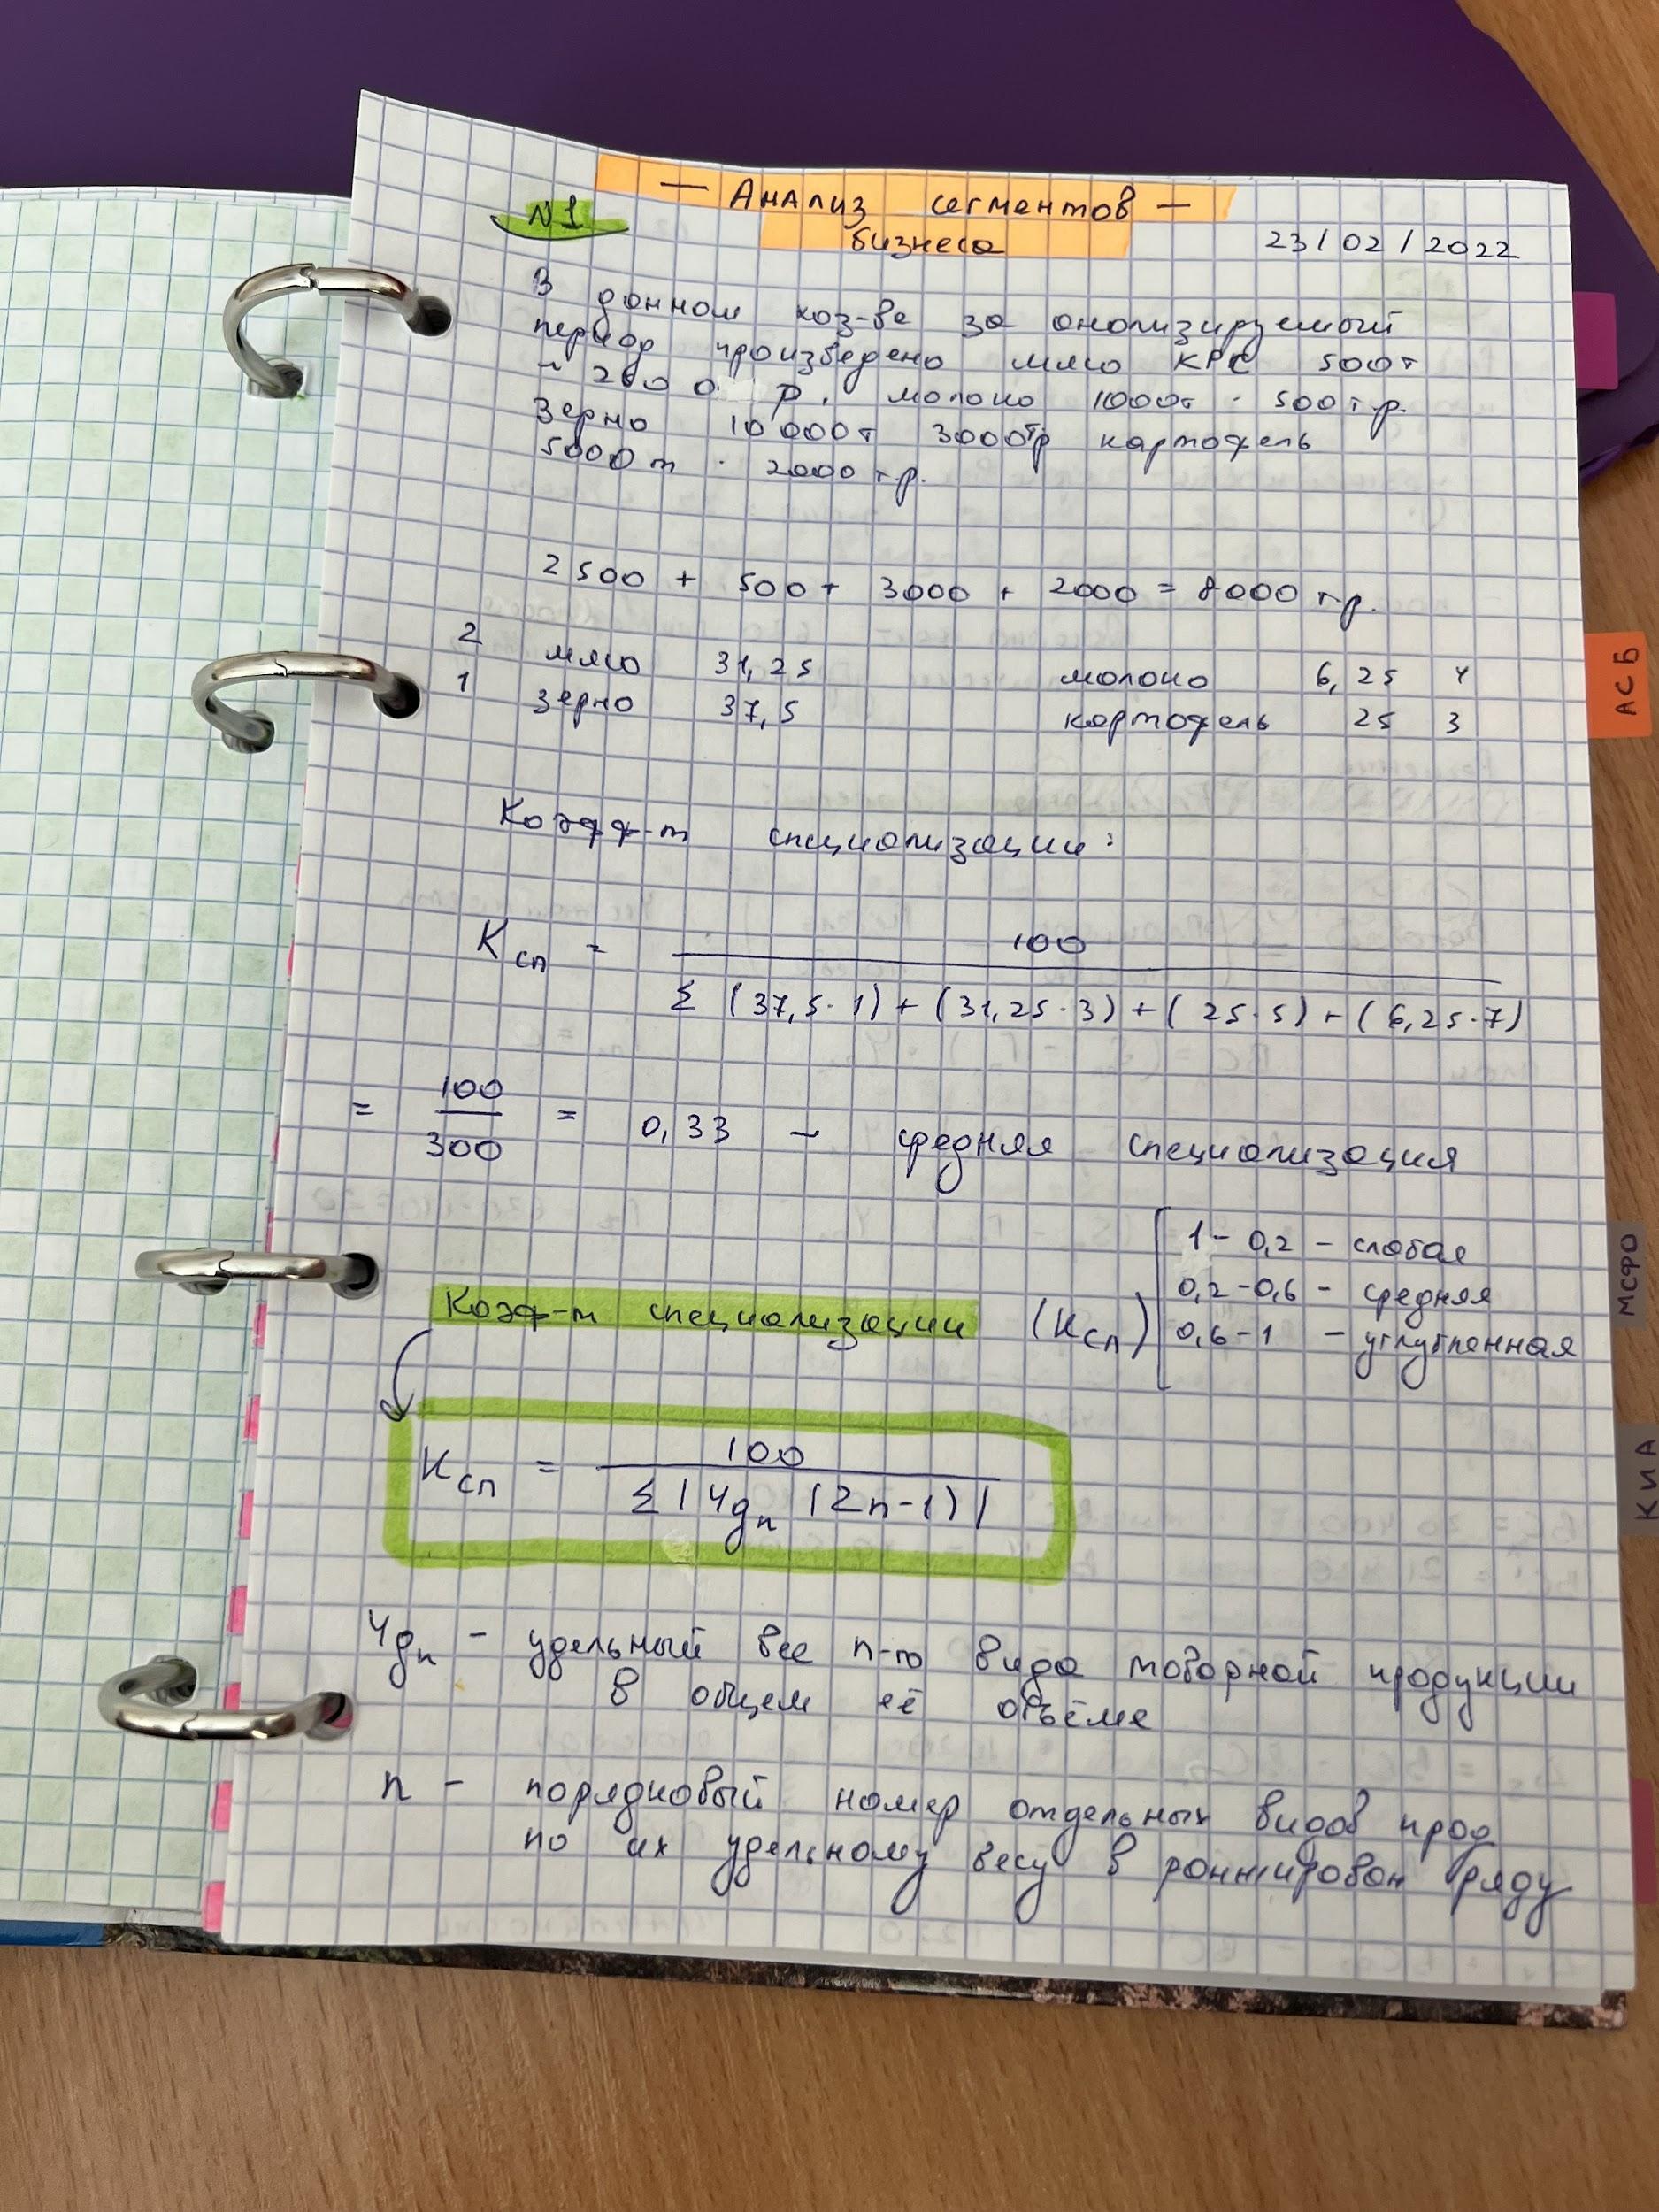 — Анализ сегментов —
бизнеса
N1
23/02/2022
В данном хоз-ве за анализируемый
период произведено мясо КРС 500т
р. молоко 1000т - 500 т.р.
Зерно 10 000т 3000тр картофель
5000 т - 2000 т.р.
2500 + 500 + 3000 + 2000 = 8000 т.р.
2 мясо 31,25 молоко 6,25 4
1 зерно 37,5 картофель 25 3
Коэфф-т специализации:
Ксп = 100
Σ (37,5·1) + (31,25·3) + (25·5) + (6,25·7)
= 100 / 300 = 0,33 – средняя специализация
Коэф-т специализации (Ксп)
1 - 0,2 - слабая
0,2 - 0,6 - средняя
0,6 - 1 - углубленная
Ксп = 100
Σ | Удn (2n-1) |
Удn - удельный вес n-го вида товарной продукции
в общем её объёме
n - порядковый номер отдельных видов прод
по их удельному весу в ранжирован ряду
АСБ
МСФО
КиА